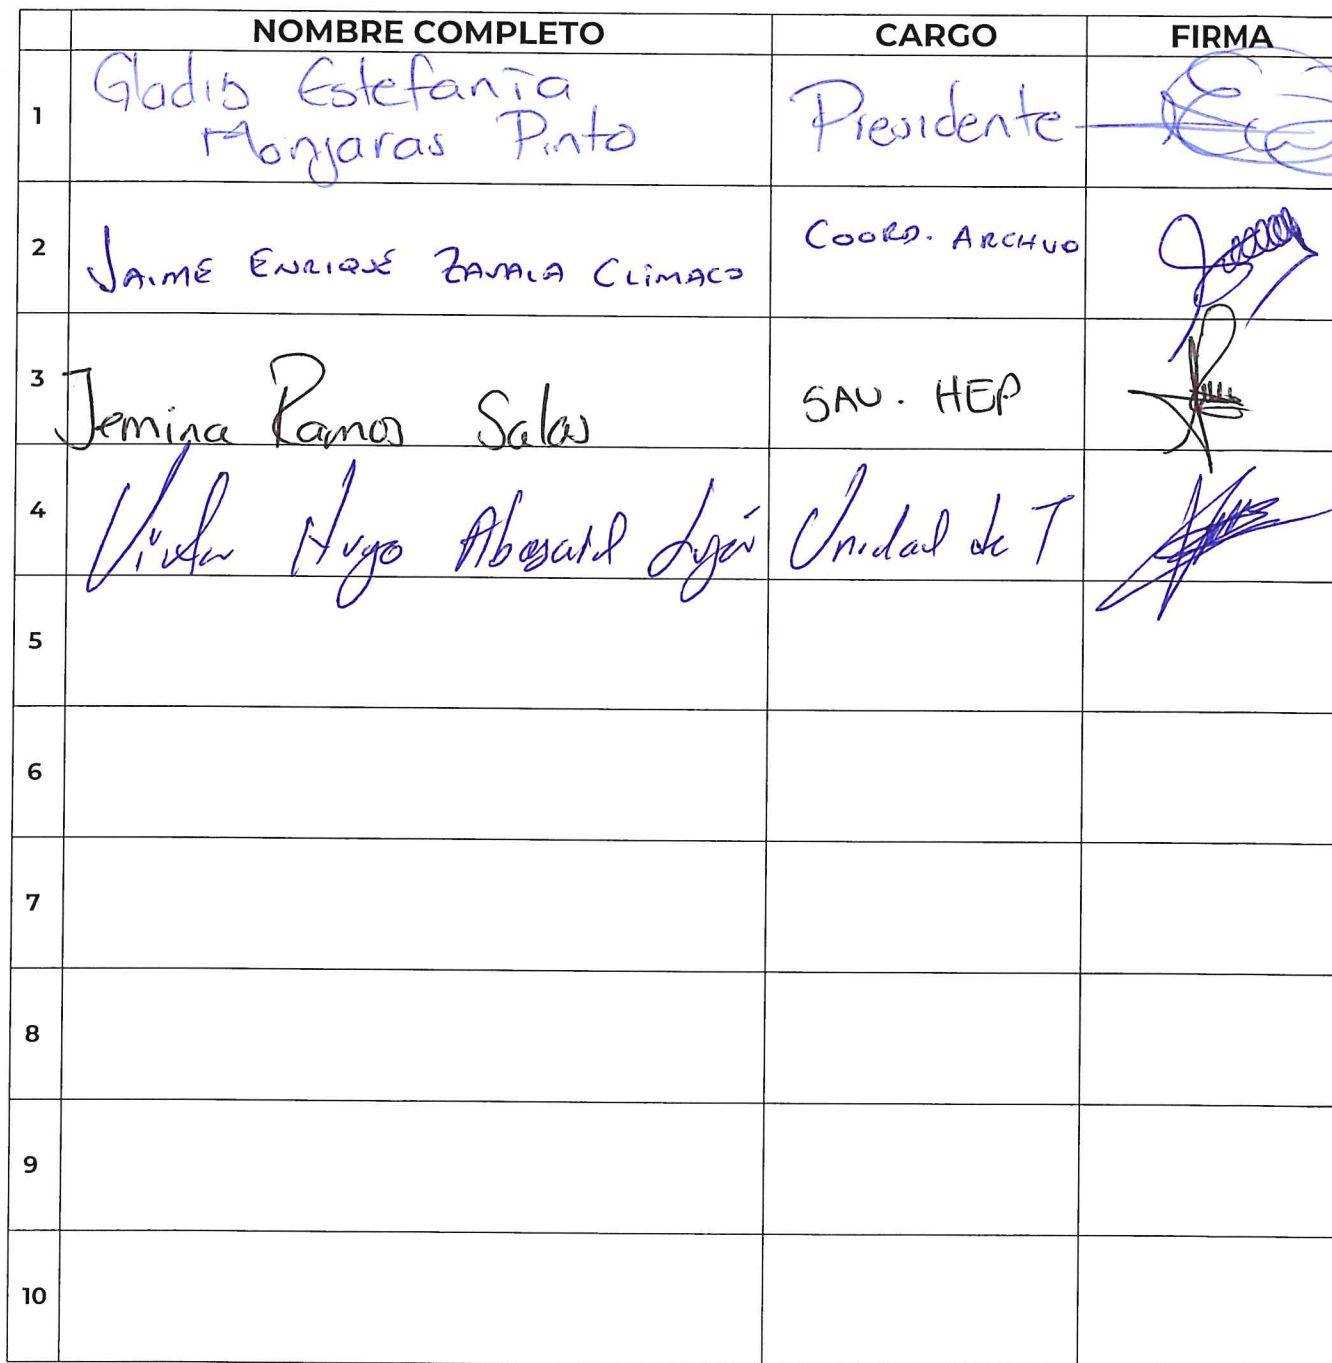 NOMBRE COMPLETO CARGO FIRMA
1 Gladis Estefanía Presidente
Monjaras Pinto
2 JAIME ENRIQUE ZAVALA CLÍMACO COORD. ARCHIVO
3 Jemina Ramos Salas SAU. HEP
4 Víctor Hugo Unidad de T
5
6
7
8
9
10